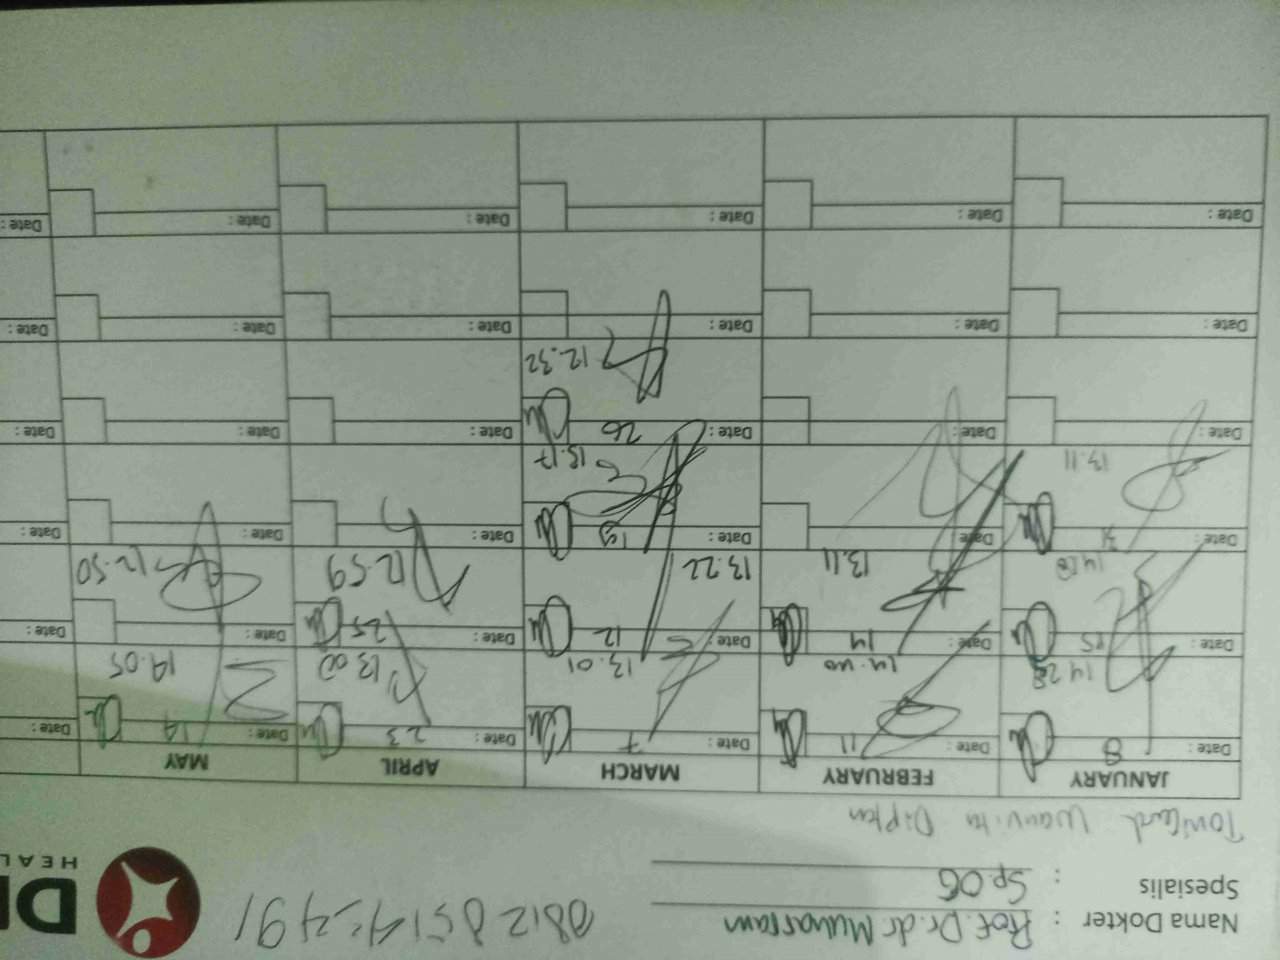 Nama Dokter : Prof. Dr. dr Muharram
Spesialis : Sp.OG
0812 8514 2491
HEAL
JANUARY FEBRUARY MARCH APRIL MAY
Date: 8 Date: 11 Date: 7 Date: 23 Date: 14 Date:
14.28 14.40 13.01 13.00 14.05
Date: 15 Date: 14 Date: 12 Date: 25 Date: Date:
14.28 13.11 13.22 12.59 12.50
Date: 31 Date: Date: 19 Date: Date: Date:
13.11 13.17
Date: Date: Date: 26 Date: Date: Date:
12.32
Date: Date: Date: Date: Date: Date:
Date: Date: Date: Date: Date: Date: